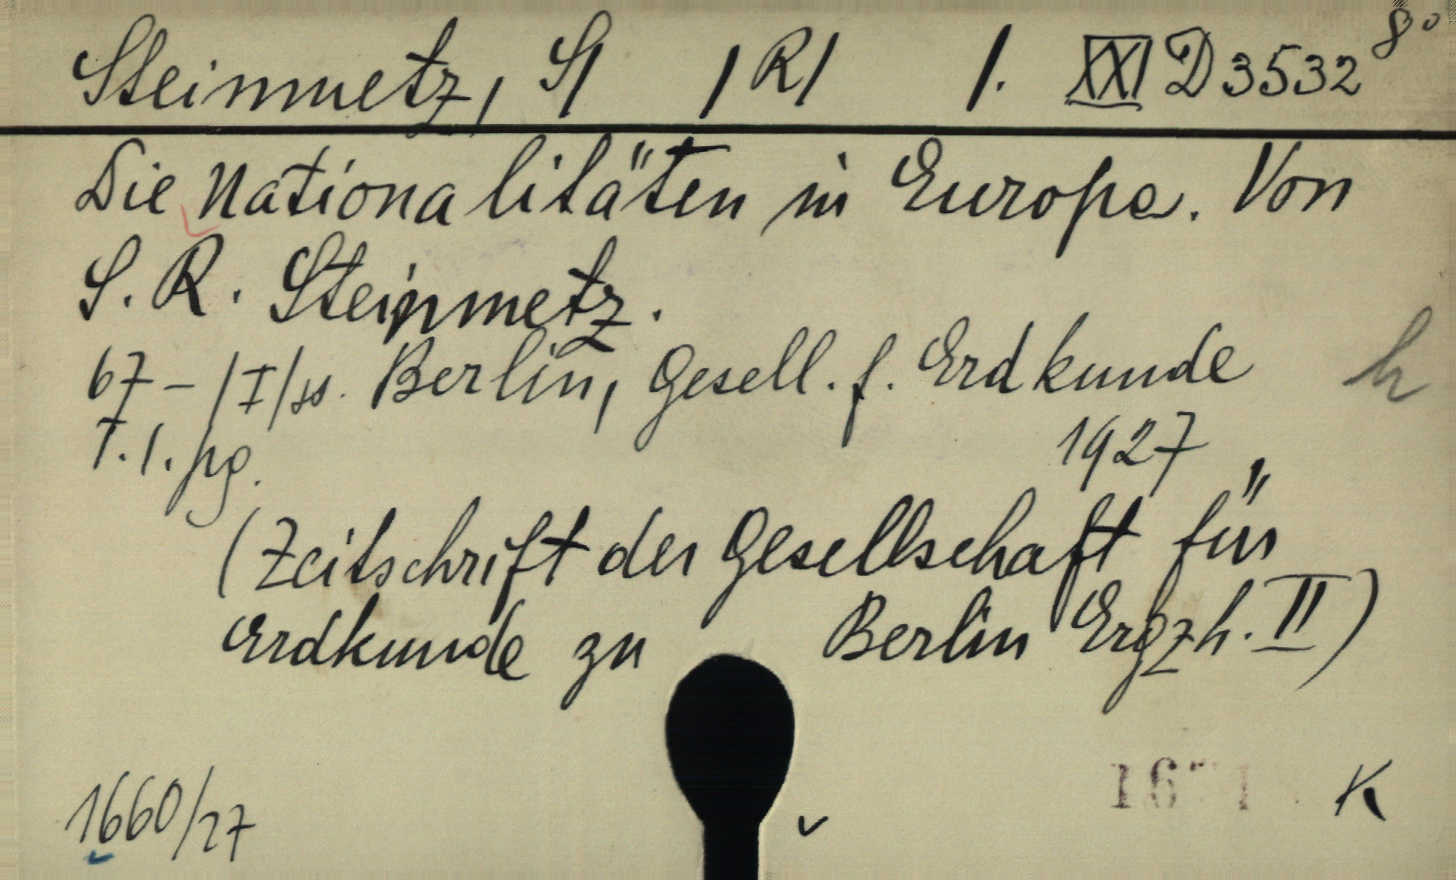 Steinmetz, S/ /R/ /. XXI D 3532 8°
Die Nationalitäten in Europa. Von
S. R. Steinmetz.
67 - /I/ss. Berlin, Gesell. f. Erdkunde h
T.1.pg. 1927
(Zeitschrift der Gesellschaft für
Erdkunde zu Berlin Ergzh. II)
1660/27 K